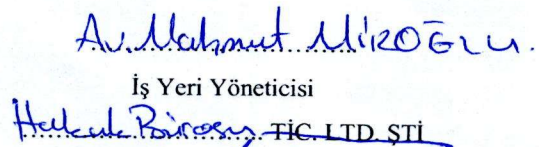 Av. Mahmut MİROĞLU.
İş Yeri Yöneticisi
Hukuk Bürosu TİC. LTD. ŞTİ